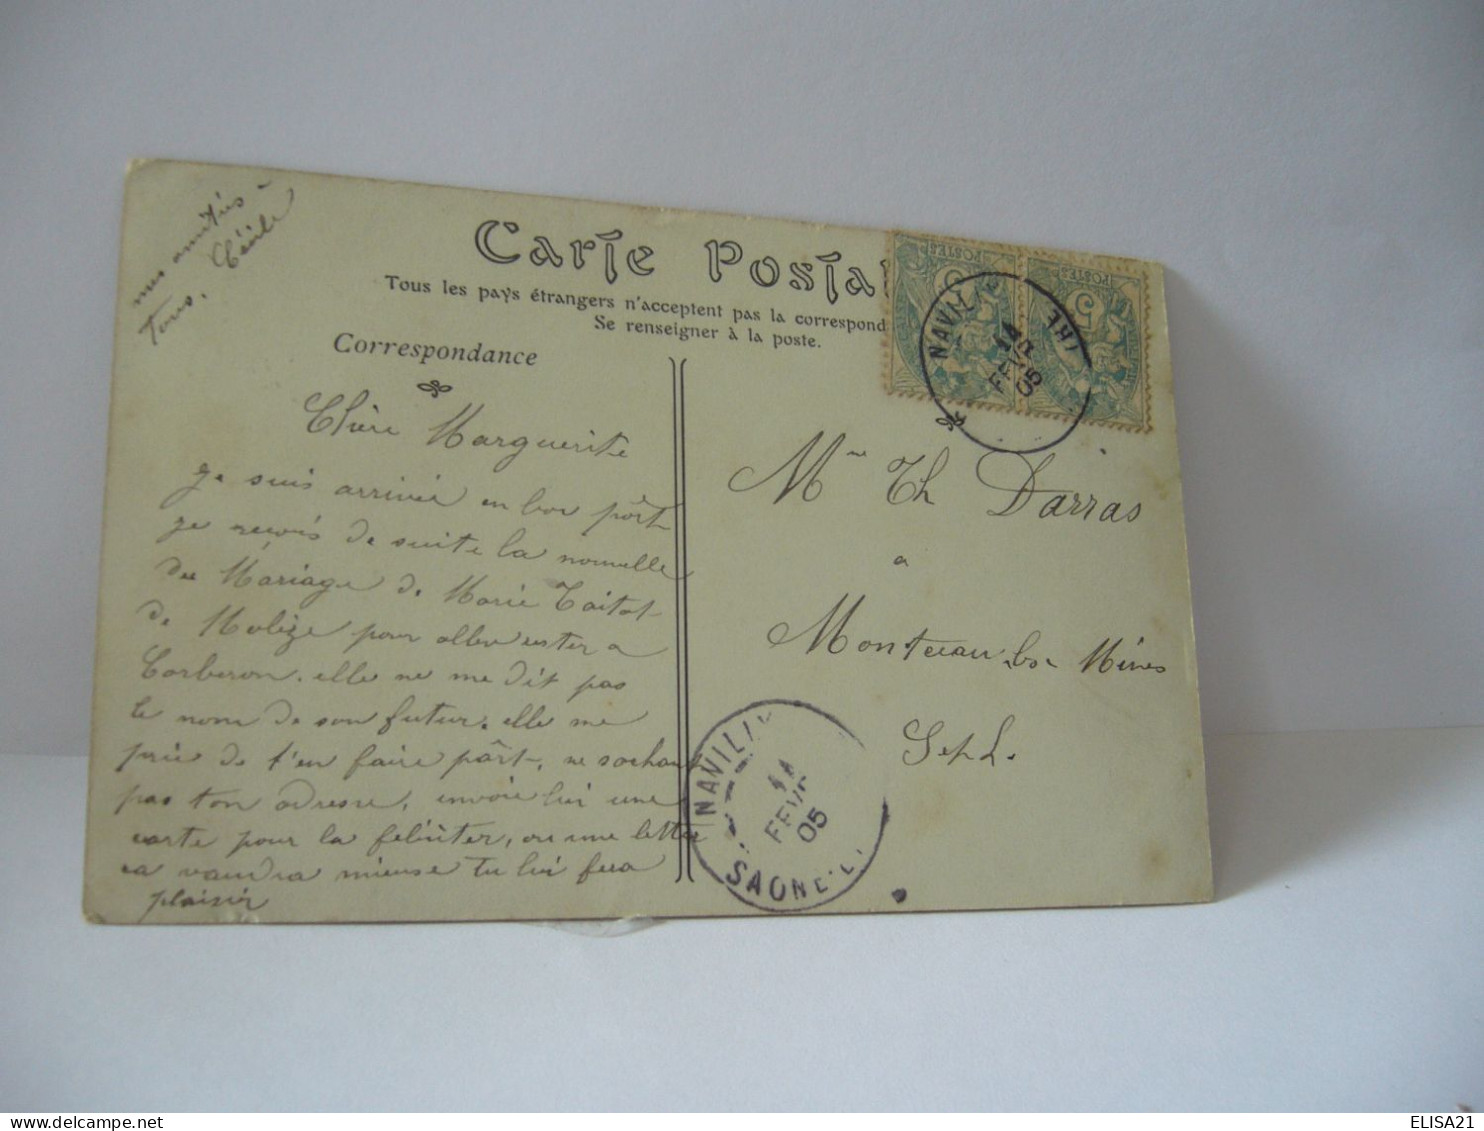 mes amitiés à
Tous. Cécile
Carte Postal
Tous les pays étrangers n'acceptent pas la correspond
Se renseigner à la poste.
Correspondance
Chère Marguerite
je suis arrivée en bon pôrt
je reçois de suite la nouvelle
du Mariage de Marie Taitot
de Molèze pour aller rester a
Corberon. elle ne me dit pas
le nom de son futur. elle me
prie de t'en faire pârt, ne sachant
pas ton adresse, envoie lui une
carte pour la feliciter, ou une lettre
ca vaudra mieuse tu lui fera
plaisir
POSTES 5
POSTES 5
NAVILLY
14
FEVR
05
IRE
Mme Th Darras
a
Montceau les Mines
S et L.
NAVILLY
14
FEVR
05
SAONE-ET-L
ELISA21